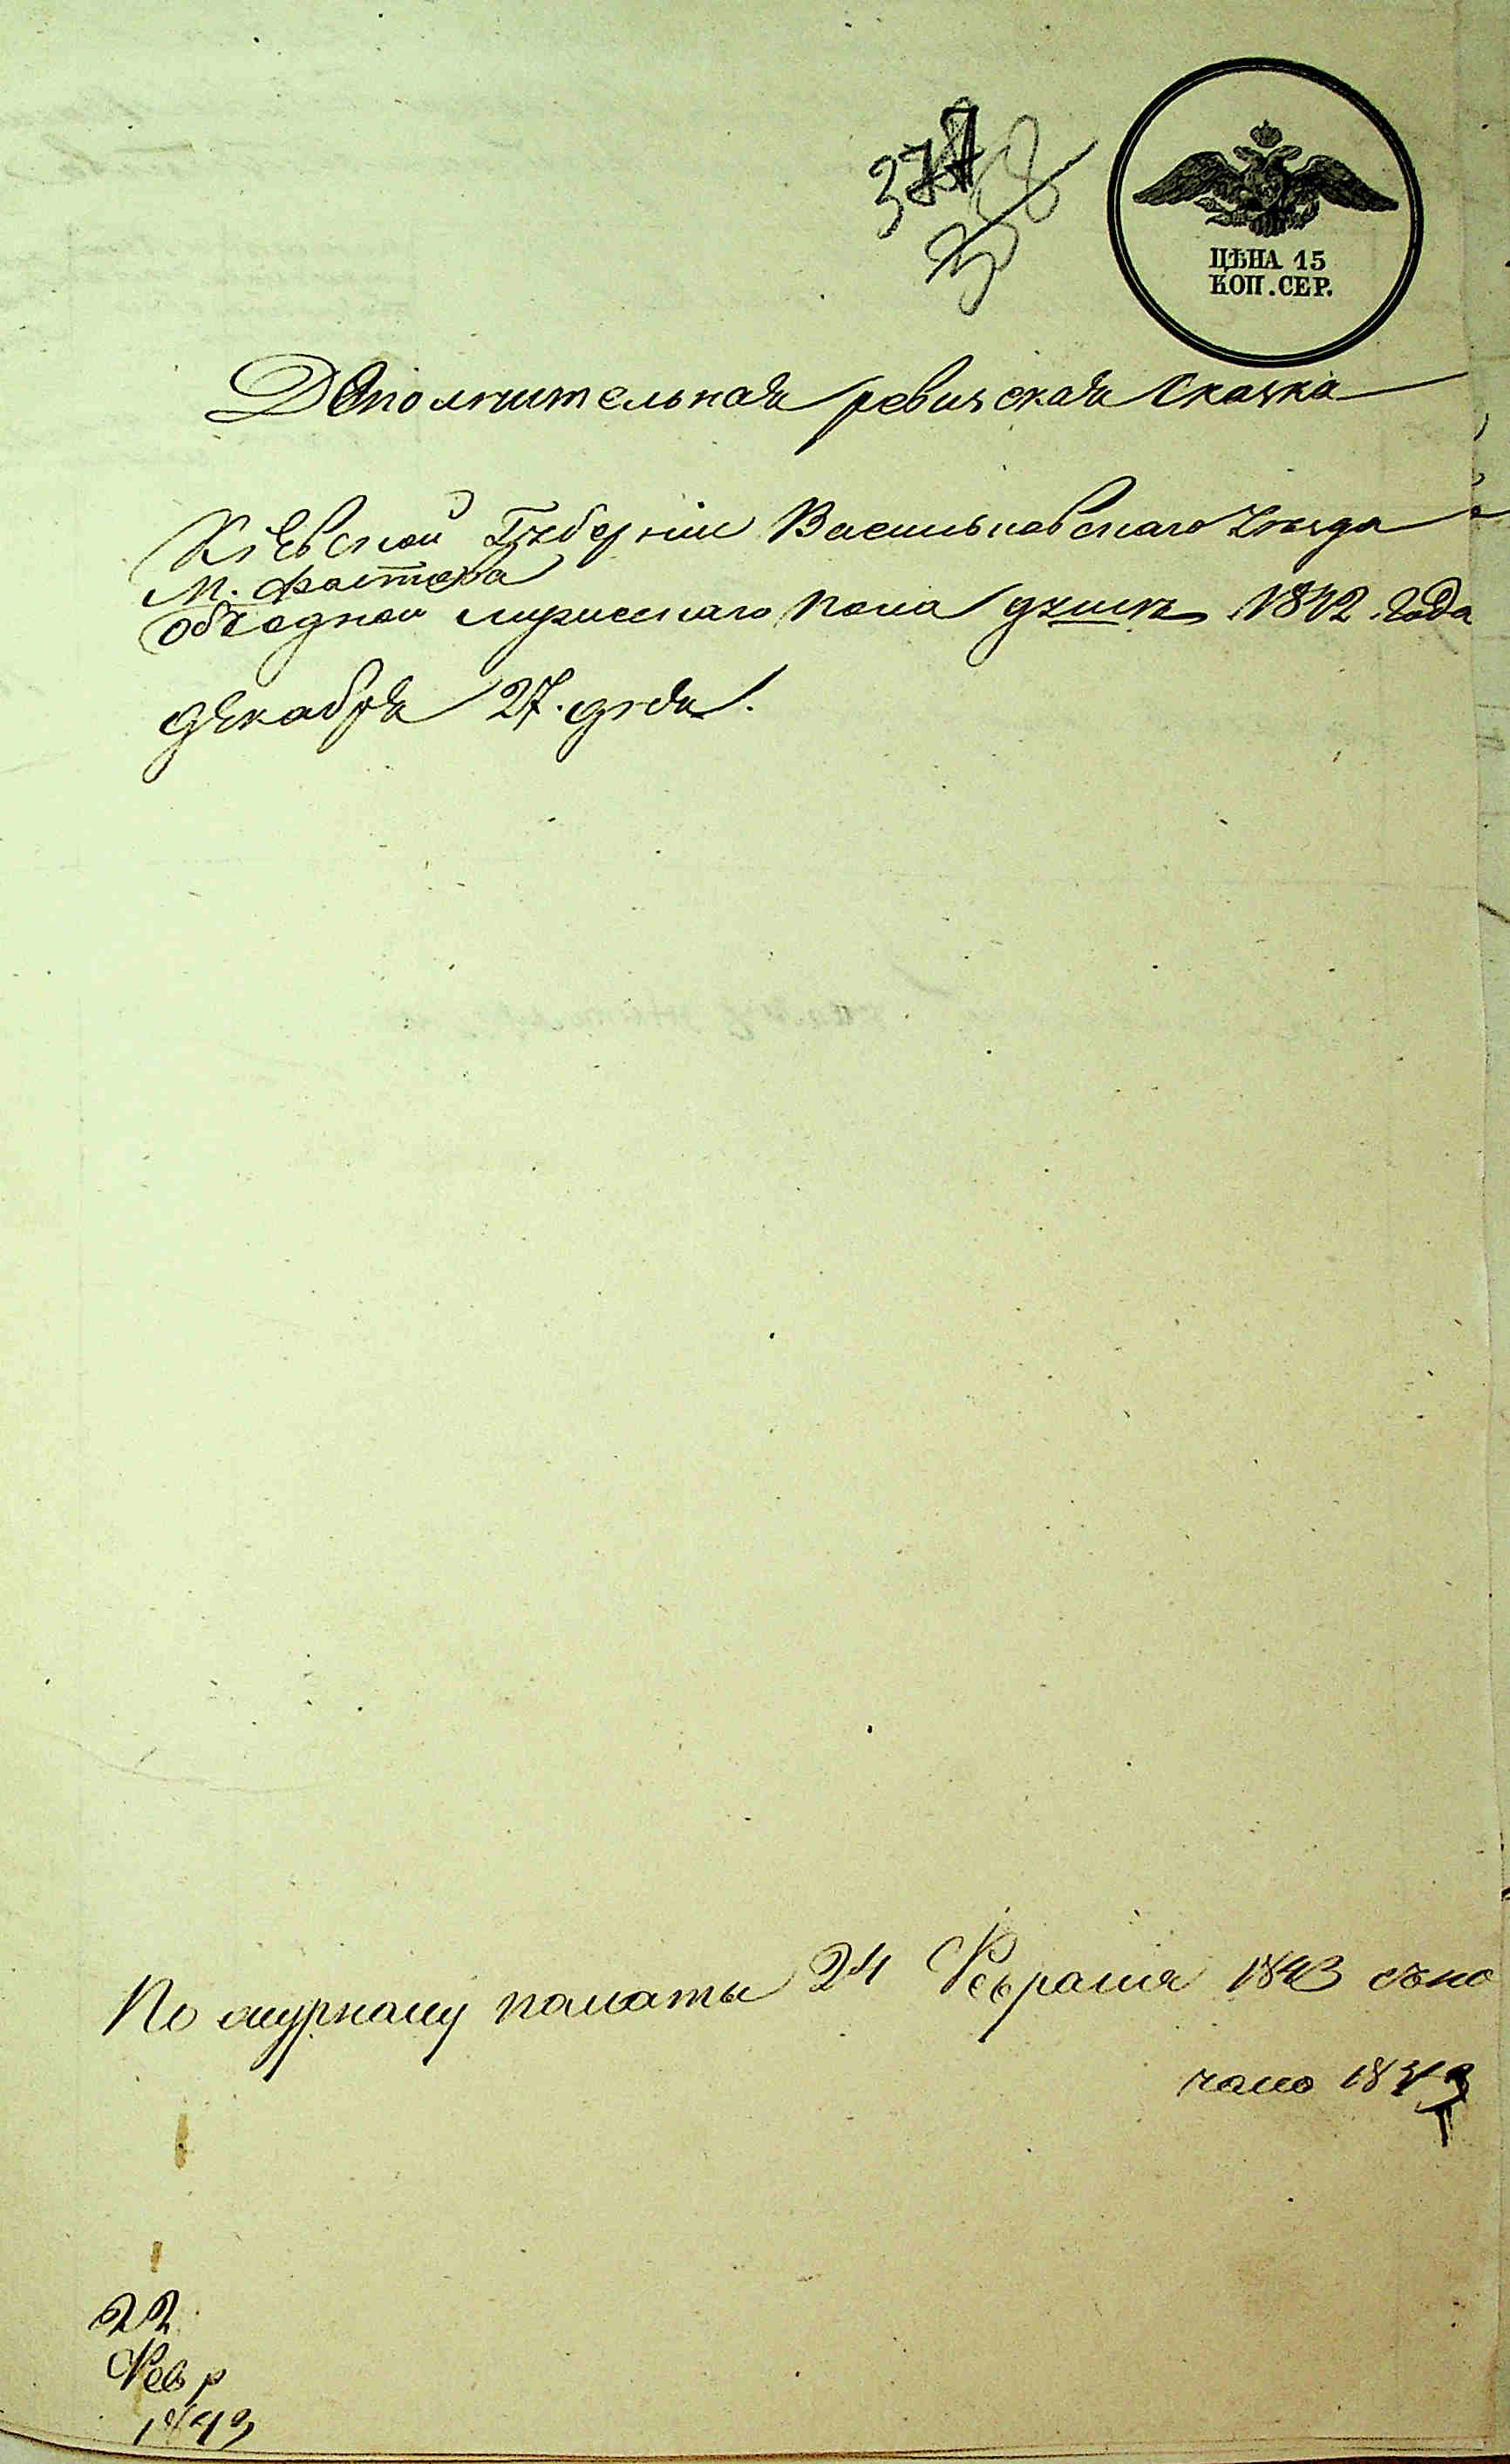 377
38
ЦѢНА 15
КОП. СЕР.
Дополнительная ревизская сказка
Кіевской Губерніи Васильковскаго уѣзда
М. Фастова
объ одной мужескаго пола душѣ 1842 года
декабря 27. дня.
По журналу палаты 24 Февраля 1843 
1843
22
Февр
1843